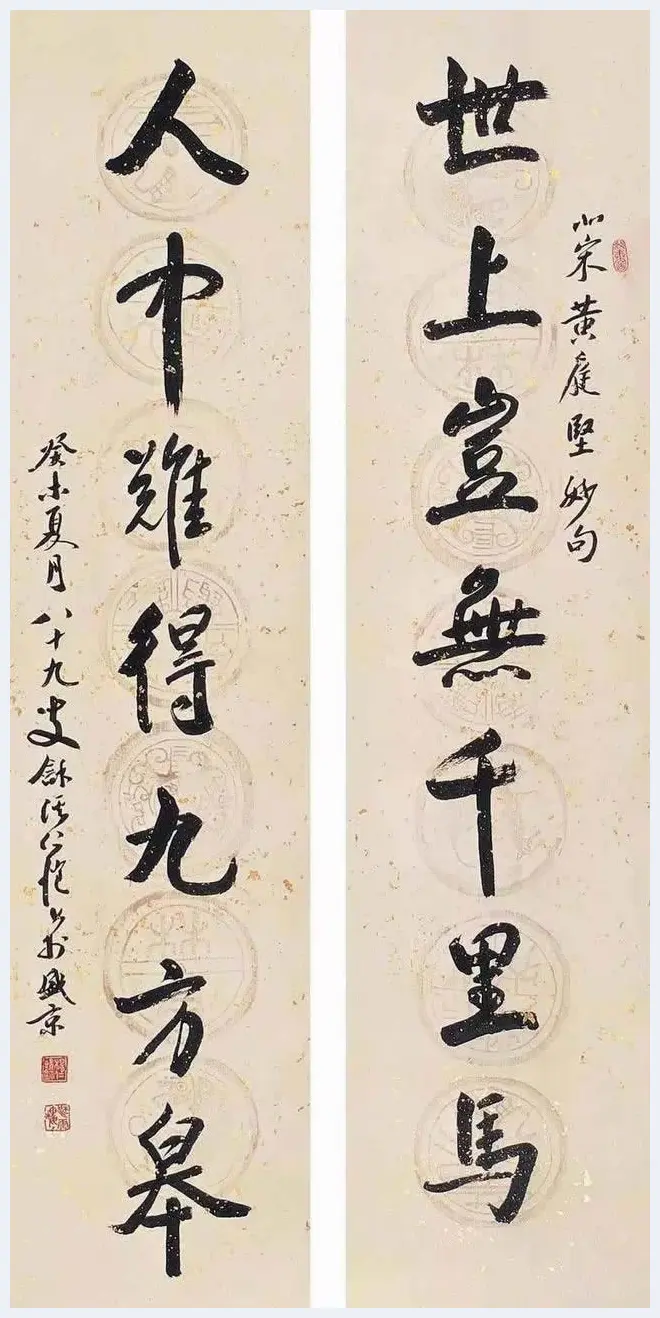 北宋黃庭堅妙句
世上豈無千里馬
人中難得九方皋
癸未夏月八十九叟龢溪仁愷書於盛京